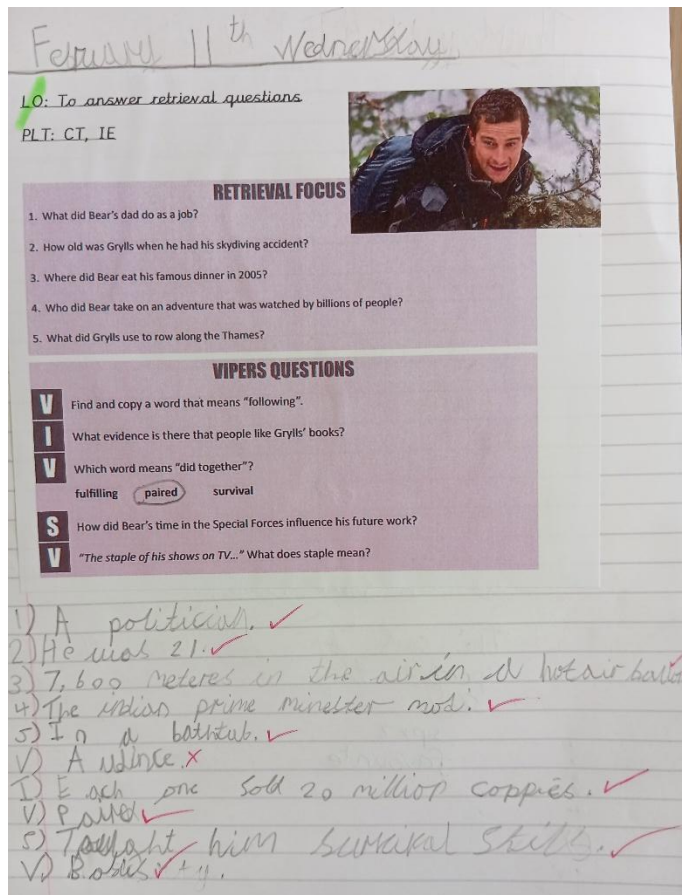 Feruary 11th Wednesday
LO: To answer retrieval questions
PLT: CT, IE
RETRIEVAL FOCUS
1. What did Bear's dad do as a job?
2. How old was Grylls when he had his skydiving accident?
3. Where did Bear eat his famous dinner in 2005?
4. Who did Bear take on an adventure that was watched by billions of people?
5. What did Grylls use to row along the Thames?
VIPERS QUESTIONS
V Find and copy a word that means "following".
I What evidence is there that people like Grylls' books?
V Which word means "did together"?
fulfilling paired survival
S How did Bear's time in the Special Forces influence his future work?
V "The staple of his shows on TV..." What does staple mean?
1) A politician.
2) He was 21.
3) 7,600 meteres in the air in a hot air
4) The indian prime minester modi.
5) In a bathtub.
V) Audince.
I) Each one sold 20 million coppies.
V) Paired
S) him survival skills.
V)